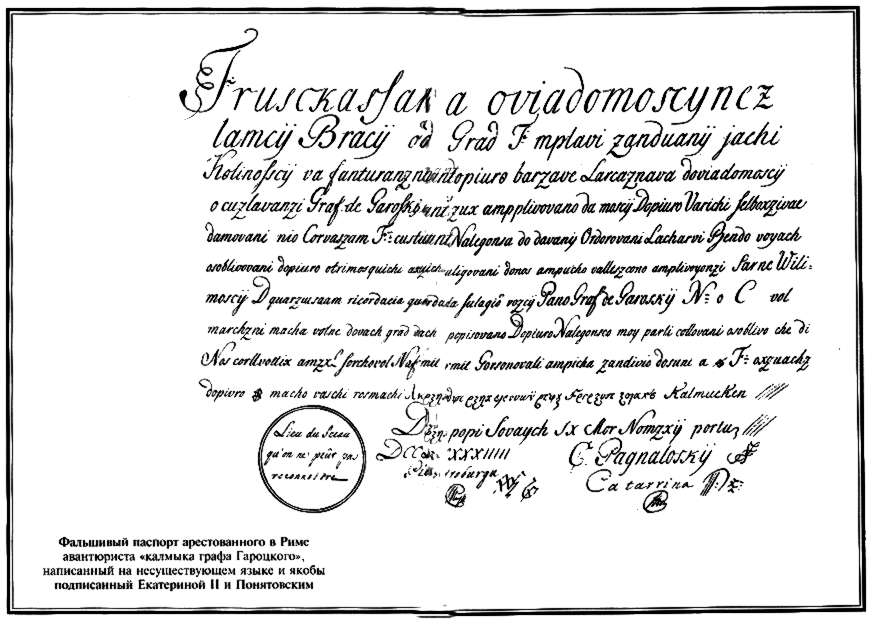 Frusckassan a oviadomoscynez
lamcij Bracij od Grad F mplavi zanduanij jachi
Kolinosscij va fanturanz dopiuro barzave Larcaznava doviadomoscij
o cuzlavanzi Graf. de Garoski zux ampplivovano da moxij Dopiuro Varichi selboxzivae
damovani nio Corvaszam F custunni Nalegonsa do davanij Ordorovani Lacharvi Bendo voyach
osoblivovani dopiuro otrimosquichi aligovani donos ampucho valleszono amplivoyonzi Sarne Wili=
moscij D quarzusaam ricordacia guardada sulagio rozcij Pano Graf de Garoskij N o C vol
marchzni macha volne dovach grad dach popisovano Dopiuro Nalegonsco moy parli collovani osoblivo che di
Nos corllvottix sorchovol Naf mit rmit Gorsonovali ampicha zandivio dosuni a F oxzuachz
dopivro macho vaschi rosmachi Kalmucken
popi Sovaych Sx Mor Nomzxij portuz
Lieu du Sceau
qu'on ne peut pas
reconnoitre
C. Pagnaloskij
Catarrina
Фальшивый паспорт арестованного в Риме
авантюриста «калмыка графа Гароцкого»,
написанный на несуществующем языке и якобы
подписанный Екатериной II и Понятовским